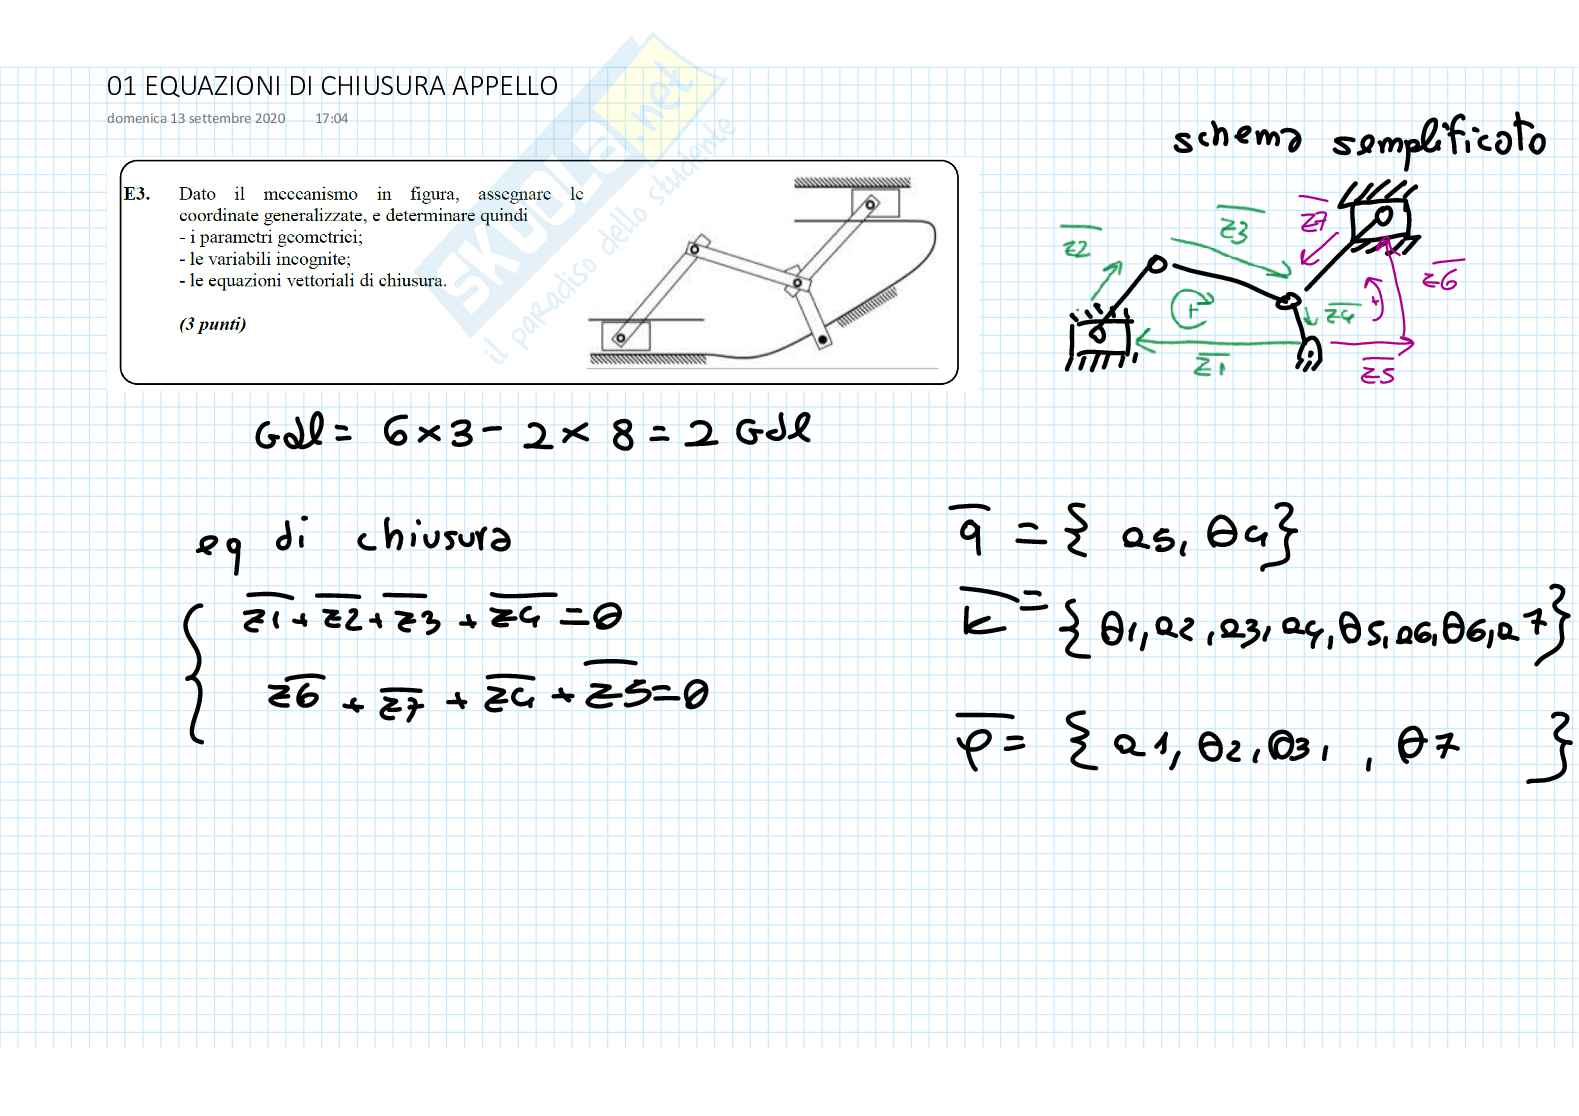 01 EQUAZIONI DI CHIUSURA APPELLO
domenica 13 settembre 2020 17:04
E3. Dato il meccanismo in figura, assegnare le
coordinate generalizzate, e determinare quindi
- i parametri geometrici;
- le variabili incognite;
- le equazioni vettoriali di chiusura.
(3 punti)
SKUOLA.net
il paradiso dello studente
schema semplificato
z2
z3
z7
z6
+
z4
+
z1
z5
Gdl = 6 × 3 - 2 × 8 = 2 Gdl
eq di chiusura
z1 + z2 + z3 + z4 = 0
z6 + z7 + z4 + z5 = 0
q = { a5, θ4}
k = { θ1, a2, a3, a4, θ5, a6, θ6, a7}
φ = { a1, θ2, θ3, , θ7 }